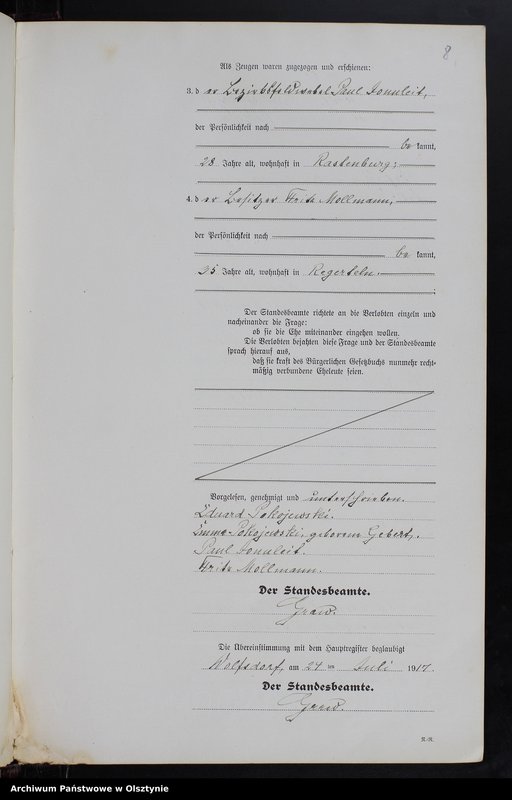 8
Als Zeugen waren zugezogen und erschienen:
3. der Bezirksfeldwebel Paul Donuleit,
der Persönlichkeit nach
bekannt,
28 Jahre alt, wohnhaft in Rastenburg;
4. der Besitzer Fritz Mollmann,
der Persönlichkeit nach
bekannt,
35 Jahre alt, wohnhaft in Regerteln.
Der Standesbeamte richtete an die Verlobten einzeln und
nacheinander die Frage:
ob sie die Ehe miteinander eingehen wollen.
Die Verlobten bejahten diese Frage und der Standesbeamte
sprach hierauf aus,
daß sie kraft des Bürgerlichen Gesetzbuchs nunmehr recht-
mäßig verbundene Eheleute seien.
Vorgelesen, genehmigt und unterschrieben.
Eduard Pokojewski.
Emma Pokojewski, geborene Gebert.
Paul Donuleit.
Fritz Mollmann.
Der Standesbeamte.
Graw.
Die Übereinstimmung mit dem Hauptregister beglaubigt
Wolfsdorf, am 24 ten Juli 1917.
Der Standesbeamte.
Graw.
K.-R.
Archiwum Państwowe w Olsztynie